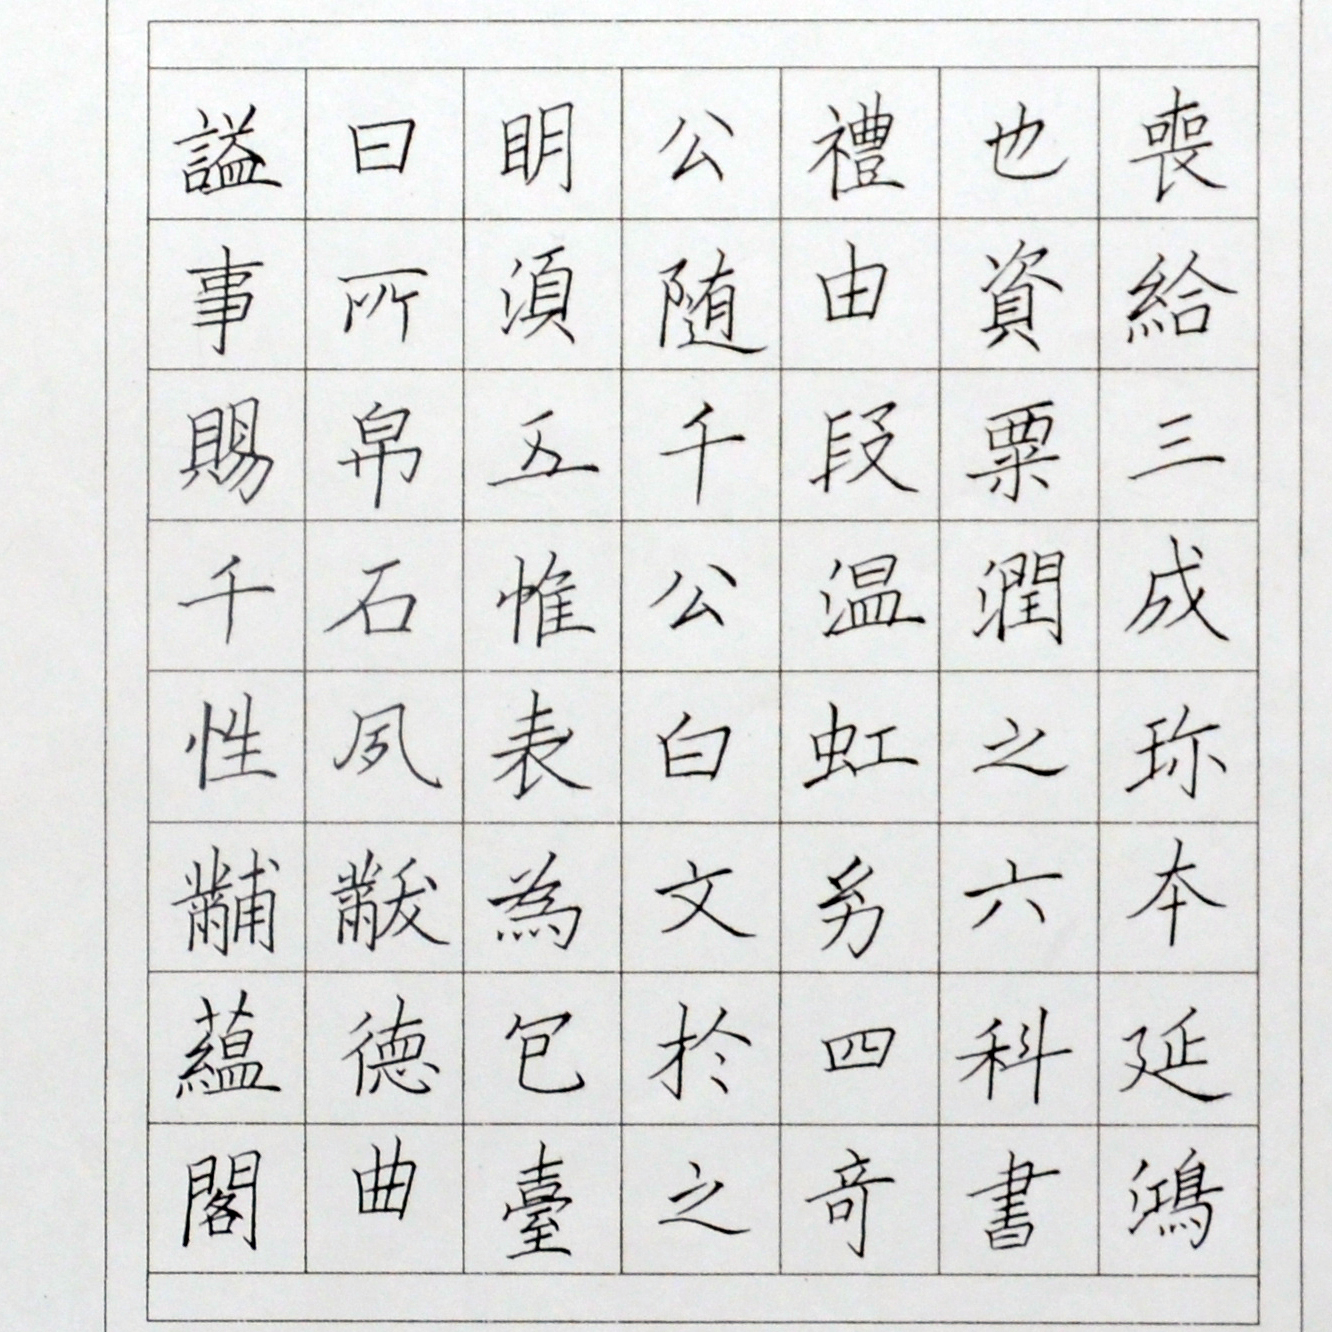 謚曰明公禮也喪
事所須随由資給
賜帛五千段粟三
千石惟公温潤成
性夙表白虹之珍
黼黻為文幼六本
蘊德包於四科延
閣曲臺之奇書鴻